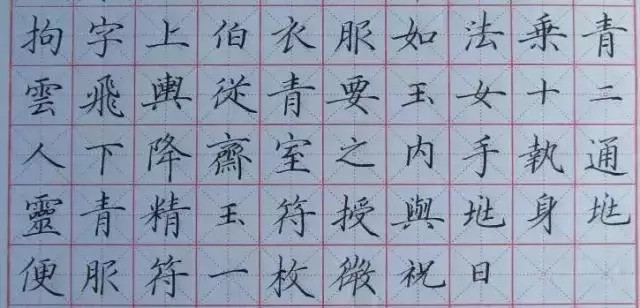 拘字上伯衣服如法乗青
雲飛輿從青要玉女十二
人下降齋室之內手執通
靈青精玉符授與兆身兆
便服符一枚微祝曰